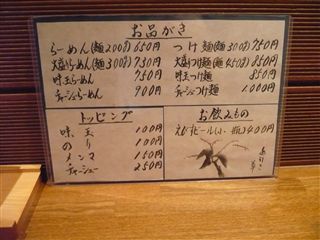 お品がき
らーめん(麺200g) 650円
大盛らーめん(麺300g) 730円
味玉らーめん 750円
チャーシューらーめん 900円
つけ麺(麺300g) 750円
大盛つけ麺(麺450g) 850円
味玉つけ麺 850円
チャーシューつけ麺 1,000円
トッピング
味玉 100円
のり 100円
メンマ 150円
チャーシュー 250円
お飲みもの
ヱビスビール(小瓶)400円